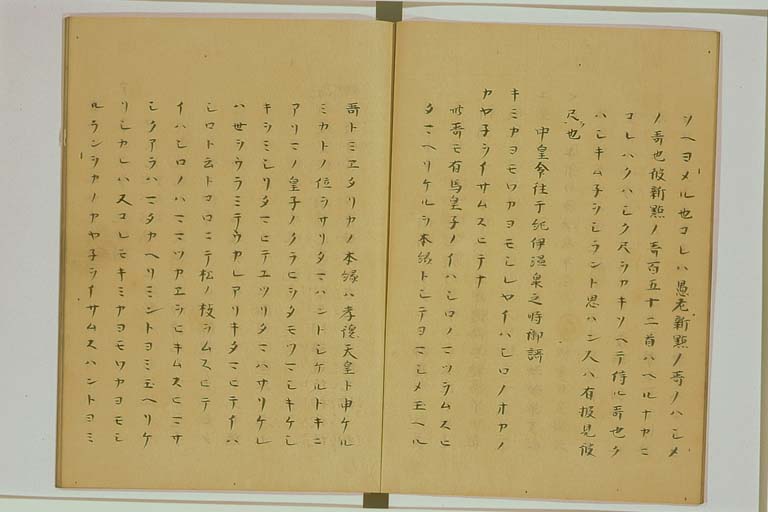 シヘヨメル也コレハ愚老新點ノ哥ノハシメ
ノ哥也彼新點ノ哥百五十二首ハヘルナカニ
コレハクハシク尺シカキソヘテ侍ル哥也ク
ハシキム子シシラント思ハン人ハ有披見彼
尺也
中皇命往于紀伊温泉之時御謌
キミカヨモワカヨモシレヤイハシロノオカノ
カヤ子シイサムスヒテナ
此哥モ有馬皇子ノイハシロノマツラムスヒ
タマヘリケルシ本縁トシテヨマシメ玉ヘル
哥トミヱタリカノ本縁ハ孝徳天皇ト申ケル
ミカトノ位シサリタマハントシケルトキニ
アリマノ皇子ノクラヒシタモツマシキケシ
キシミシリタマヒテユツリタマハサリケレ
ハ世シウラミテウカレアリキタマヒテイハ
シロト云トコロニテ松ノ枝ラムスヒテ
イハシロノハママツカヱシヒキムスヒマサ
シクアラハマタカヘリミントヨミ玉ヘリケ
リシカレハ又コレモキミカヨモワカヨモシ
ルランシカノカヤ子シイサムスハントヨミ